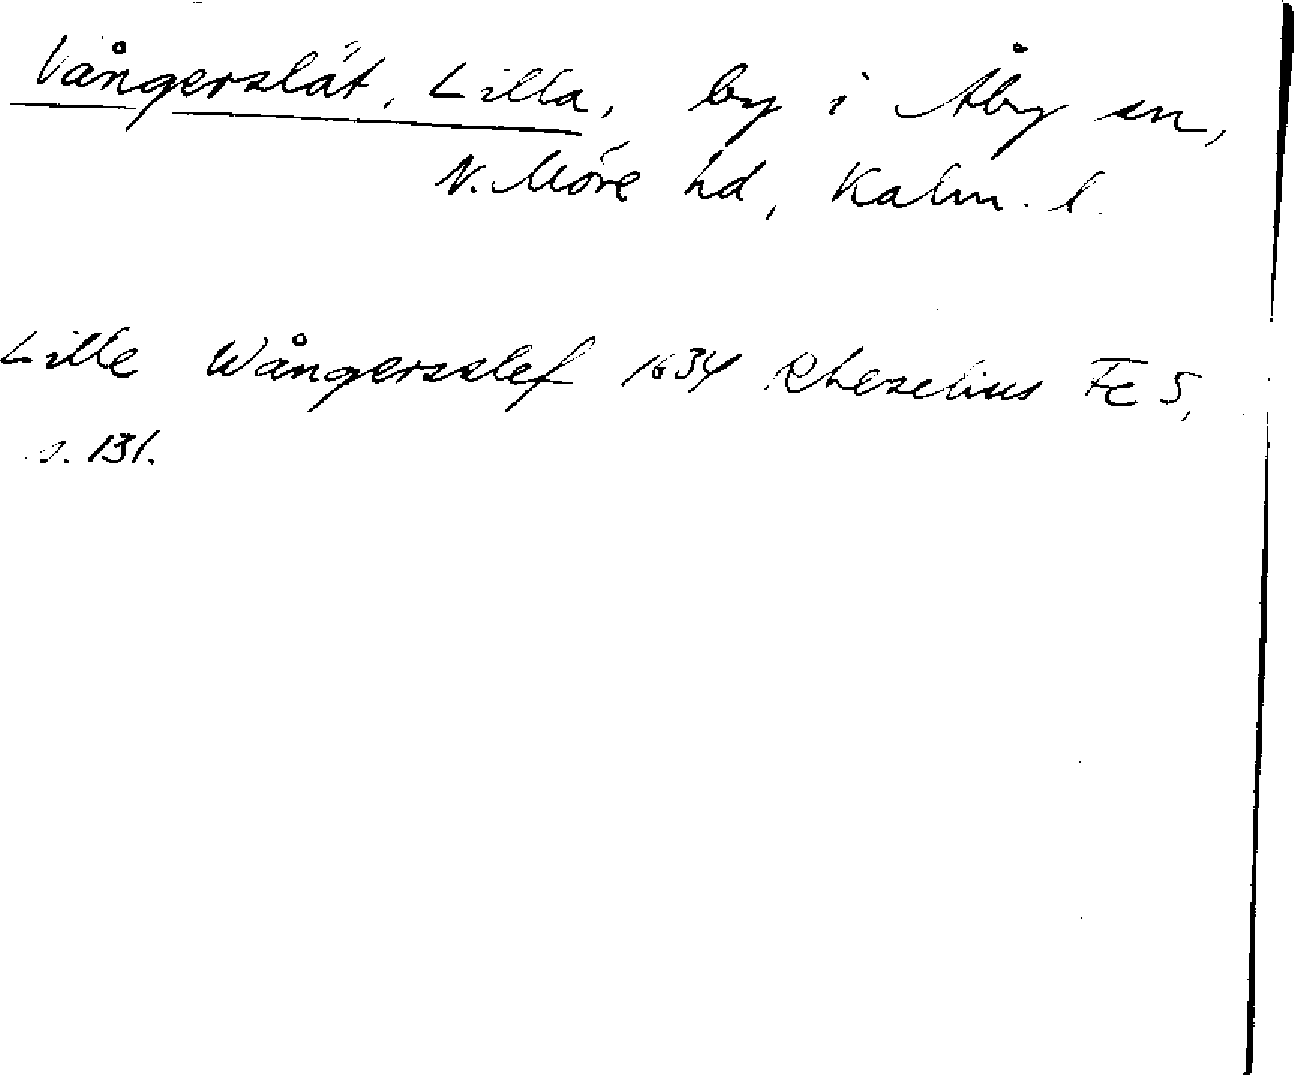 Vångerslät, Lilla, by i Åby sn,
N. Möre hd, Kalm. l.
Lille Wångersslef 1634 Rhezelius FE 5,
s. 131.